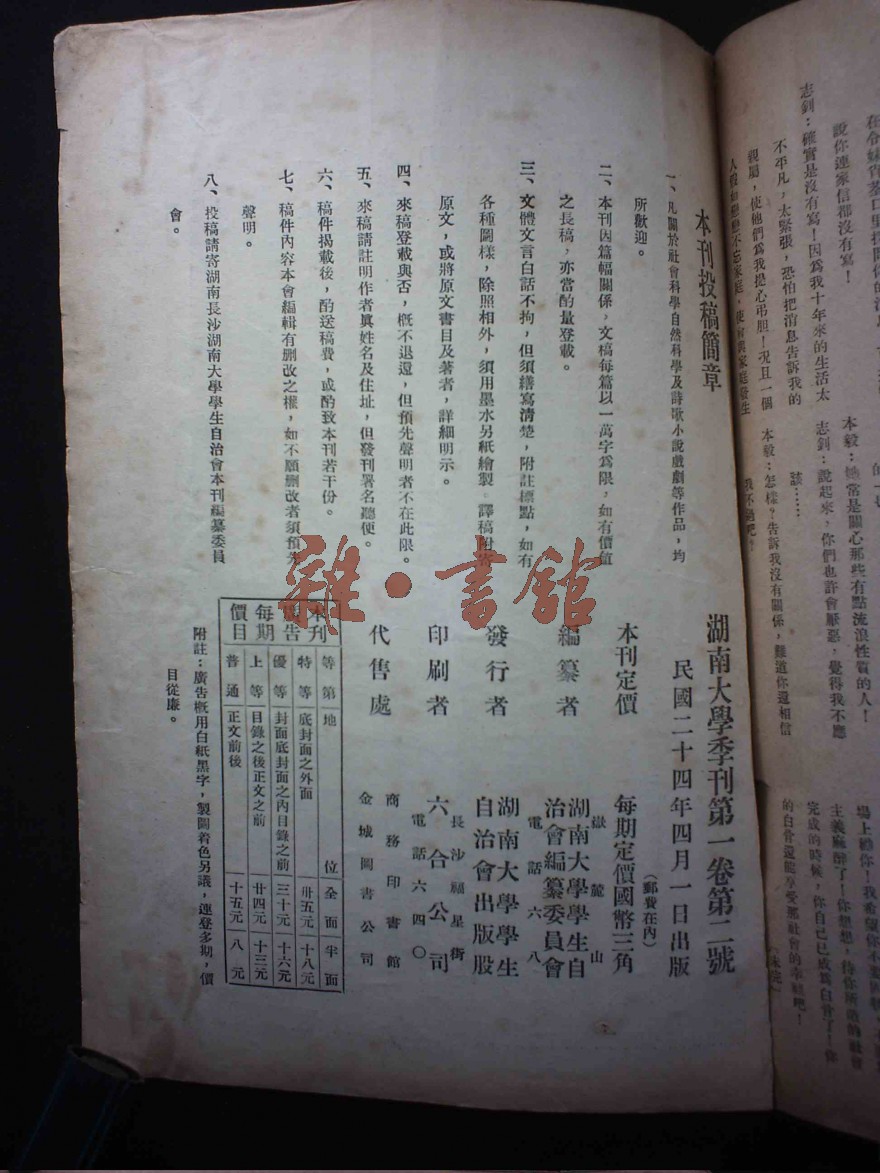 本刊投稿簡章
一、凡關於社會科學自然科學及詩歌小說戲劇等作品，均
所歡迎。
二、本刊因篇幅關係，文稿每篇以一萬字爲限，如有價值
之長稿，亦當酌量登載。
三、文體文言白話不拘，但須繕寫清楚，附註標點，如有
各種圖樣，除照相外，須用墨水另紙繪製。譯稿附寄
原文，或將原文書目及著者，詳細明示。
四、來稿登載與否，槪不退還，但預先聲明者不在此限。
五、來稿請註明作者眞姓名及住址，但發刊署名聽便。
六、稿件揭載後，酌送稿費，或酌致本刊若干份。
七、稿件內容本會編輯有删改之權，如不願删改者須預先
聲明。
八、投稿請寄湖南長沙湖南大學學生自治會本刊編纂委員
會。
湖南大學季刊第一卷第二號
民國二十四年四月一日出版
本刊定價 每期定價國幣三角
（郵費在內）
編纂者 嶽麓山
湖南大學學生自
治會編纂委員會
電話六八
發行者 湖南大學學生
自治會出版股
印刷者 長沙福星街
六合公司
電話六四〇
代售處 商務印書館
金城圖書公司
本刊廣告每期價目
等第 地位 全面 半面
特等 底封面之外面 卅五元 十八元
優等 封面底封面之內目錄之前 三十元 十六元
上等 目錄之後正文之前 廿四元 十三元
普通 正文前後 十五元 八元
附註：廣告槪用白紙黑字，製圖着色另議，連登多期，價
目從廉。
雜·書館
說你連家信都沒有寫！
志釗：確實是沒有寫！因爲我十年來的生活太
不平凡，太緊張，恐怕把消息告訴我的
親屬，使他們爲我提心弔胆！况且一個
本毅：她常是關心那些有點流浪性質的人！
志釗：說起來，你們也許會厭惡，覺得我不應
該……
本毅：怎樣？告訴我沒有關係，難道你還相信
我不過吧？
主義麻醉了！你想想，待你所造的社會
完成的時候，你自己已成爲白骨了！你
的白骨還能享受那社會的幸福吧！